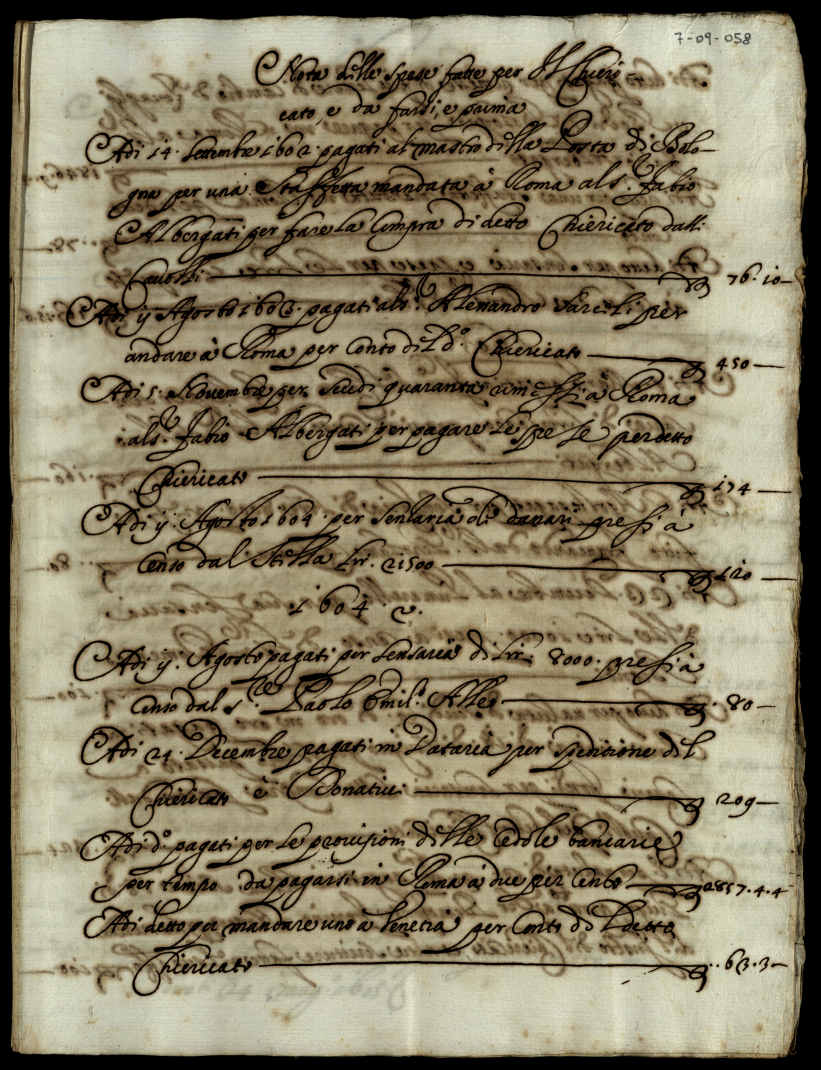 7-09-058
Nota delle spese fatte per Il Chieri-
cato, e da farsi, e prima
Adi 14. Settembre 1602. pagati al mastro della Posta di Bolo-
gna per una Staffetta mandata à Roma al s.r Fabio
Albergati per fare la Compra di detto Chiericato dalli
76. 10
Adi ij Agosto 1603. pagati al s.r Alessandro per
andare à Roma per conto di d.o Chiericato 450
Adi 5. Novembre per scudi quaranta à Roma
al s.r Fabio Albergati per pagare le spese per detto
Chiericato 174
Adi ij. Agosto 1604. per sensaria di danari presi à
Censo dal Stella Lir. 21500 120
1604
Adi ij. Agosto pagati per sensaria di Lir. 8000. presi à
Censo dal s.r Paolo Emil.o Alle 80
Adi 24. Decembre pagati in Dataria per speditione del
Chiericato è Donativi 209
Adi d.o pagati per le provisioni delle Cedole bancarie
per tempo da pagarsi in Roma à due per Cento 2857. 4. 4
Adi detto per mandare uno à Venetia per Conto del detto
Chiericato 63. 3